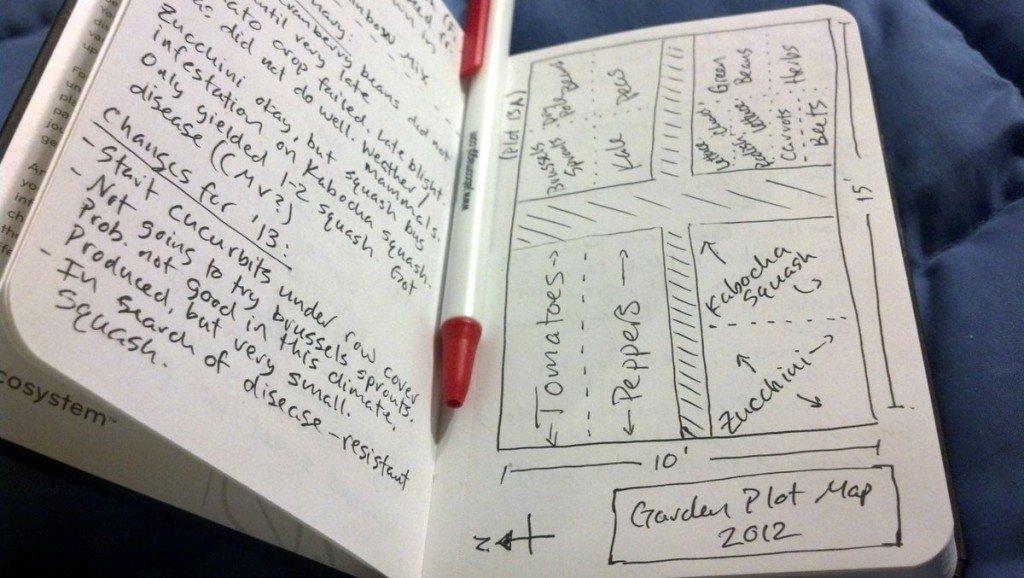 did not
until very late
crop failed. Late blight.
did not do well. Weather /
mammals.
Zucchini okay, but squash bug
infestation on Kabocha squash-
Only yielded 1-2 squash Got
disease (CMV?)
Changes for '13:
- Start cucurbits under row cover
- Not going to try brussels sprouts.
Prob. not good in this climate.
Produced, but very small.
- In search of disease-resistant
squash.
cosystem™
(Plot 13A)
Brussels
Sprouts
Kale
Peas
Green
Beans
Lettuce
Carrots
Herbs
Beets
←Tomatoes→
←Peppers→
Kabocha
Squash
Zucchini
15'
10'
N
Garden Plot Map
2012